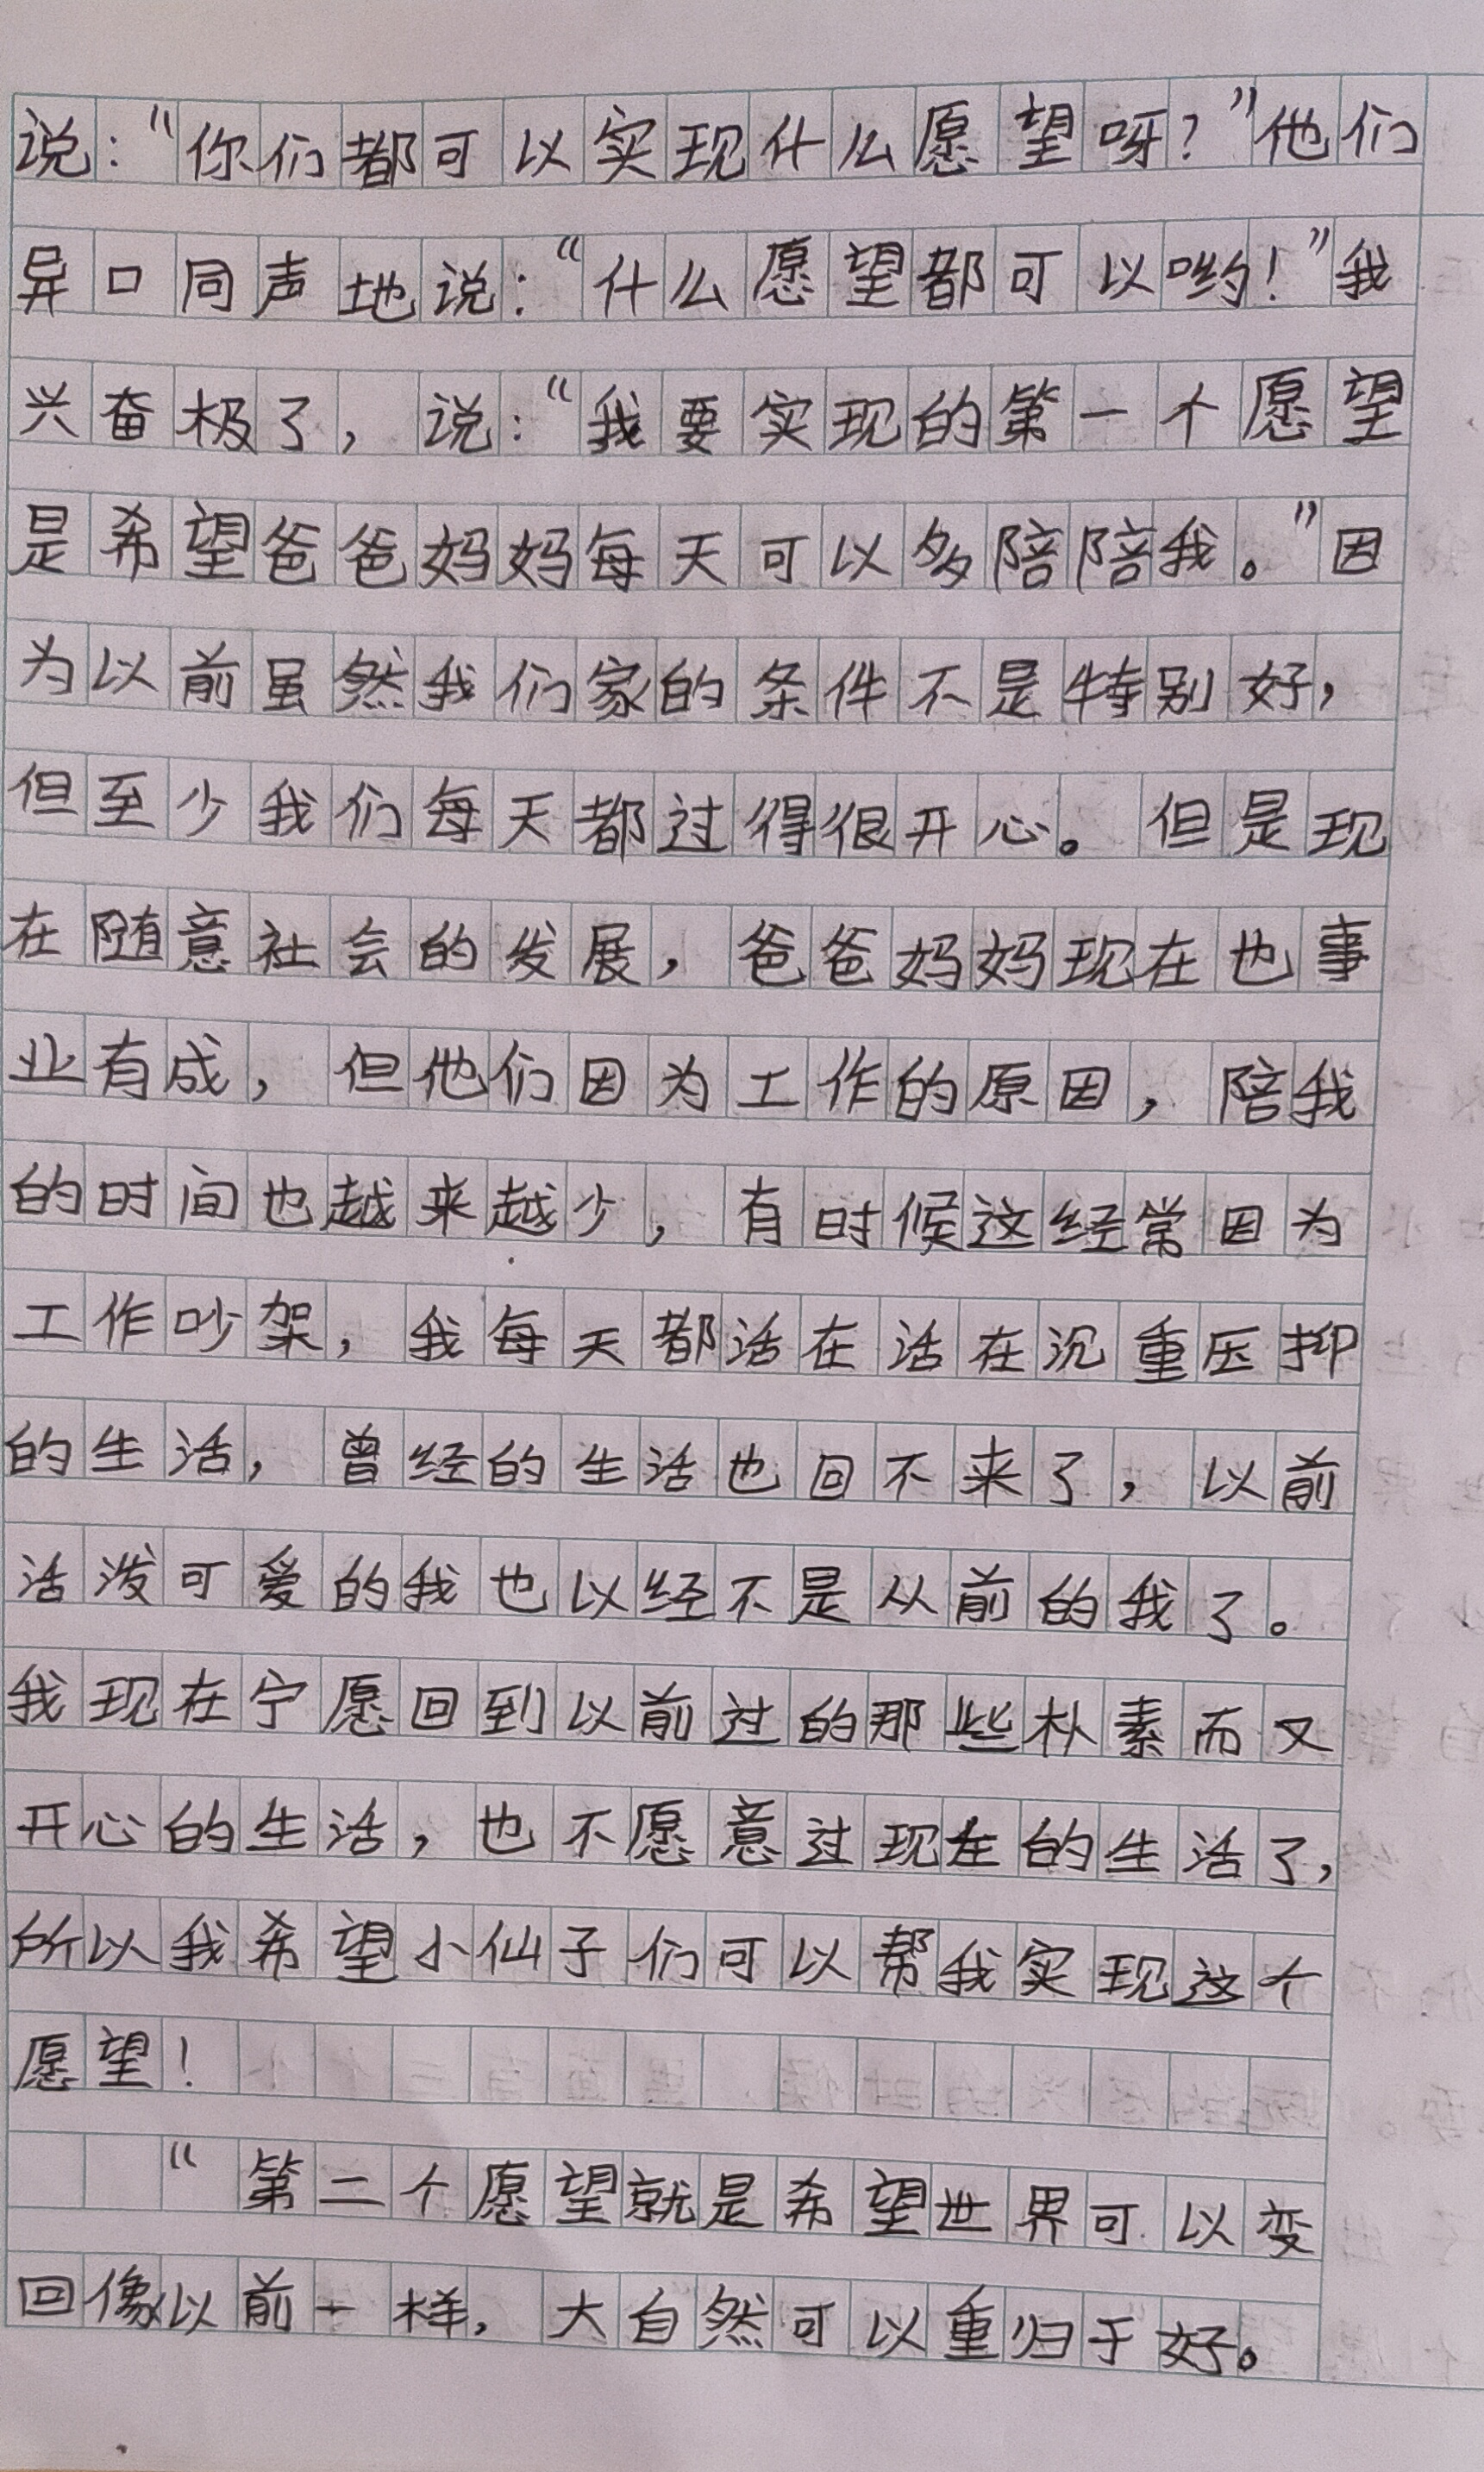 说：“你们都可以实现什么愿望呀？”他们
异口同声地说：“什么愿望都可以哟！”我
兴奋极了，说：“我要实现的第一个愿望
是希望爸爸妈妈每天可以多陪陪我。”因
为以前虽然我们家的条件不是特别好，
但至少我们每天都过得很开心。但是现
在随意社会的发展，爸爸妈妈现在也事
业有成，但他们因为工作的原因，陪我
的时间也越来越少，有时候这经常因为
工作吵架，我每天都活在活在沉重压抑
的生活，曾经的生活也回不来了，以前
活泼可爱的我也以经不是从前的我了。
我现在宁愿回到以前过的那些朴素而又
开心的生活，也不愿意过现在的生活了，
所以我希望小仙子们可以帮我实现这个
愿望！
“第二个愿望就是希望世界可以变
回像以前一样，大自然可以重归于好。